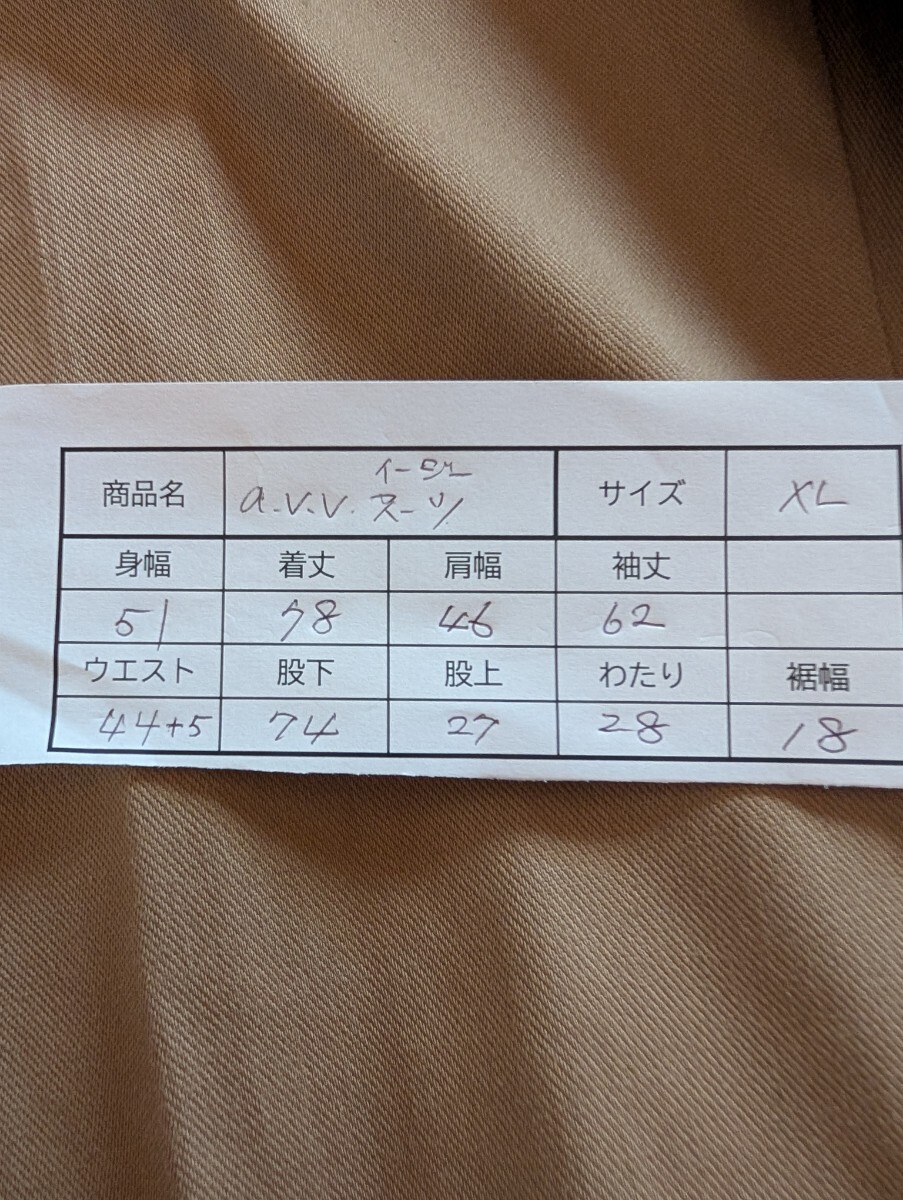 イージー
商品名 a.v.v. スーツ サイズ XL
身幅 着丈 肩幅 袖丈
51 78 46 62
ウエスト 股下 股上 わたり 裾幅
44+5 74 27 28 18